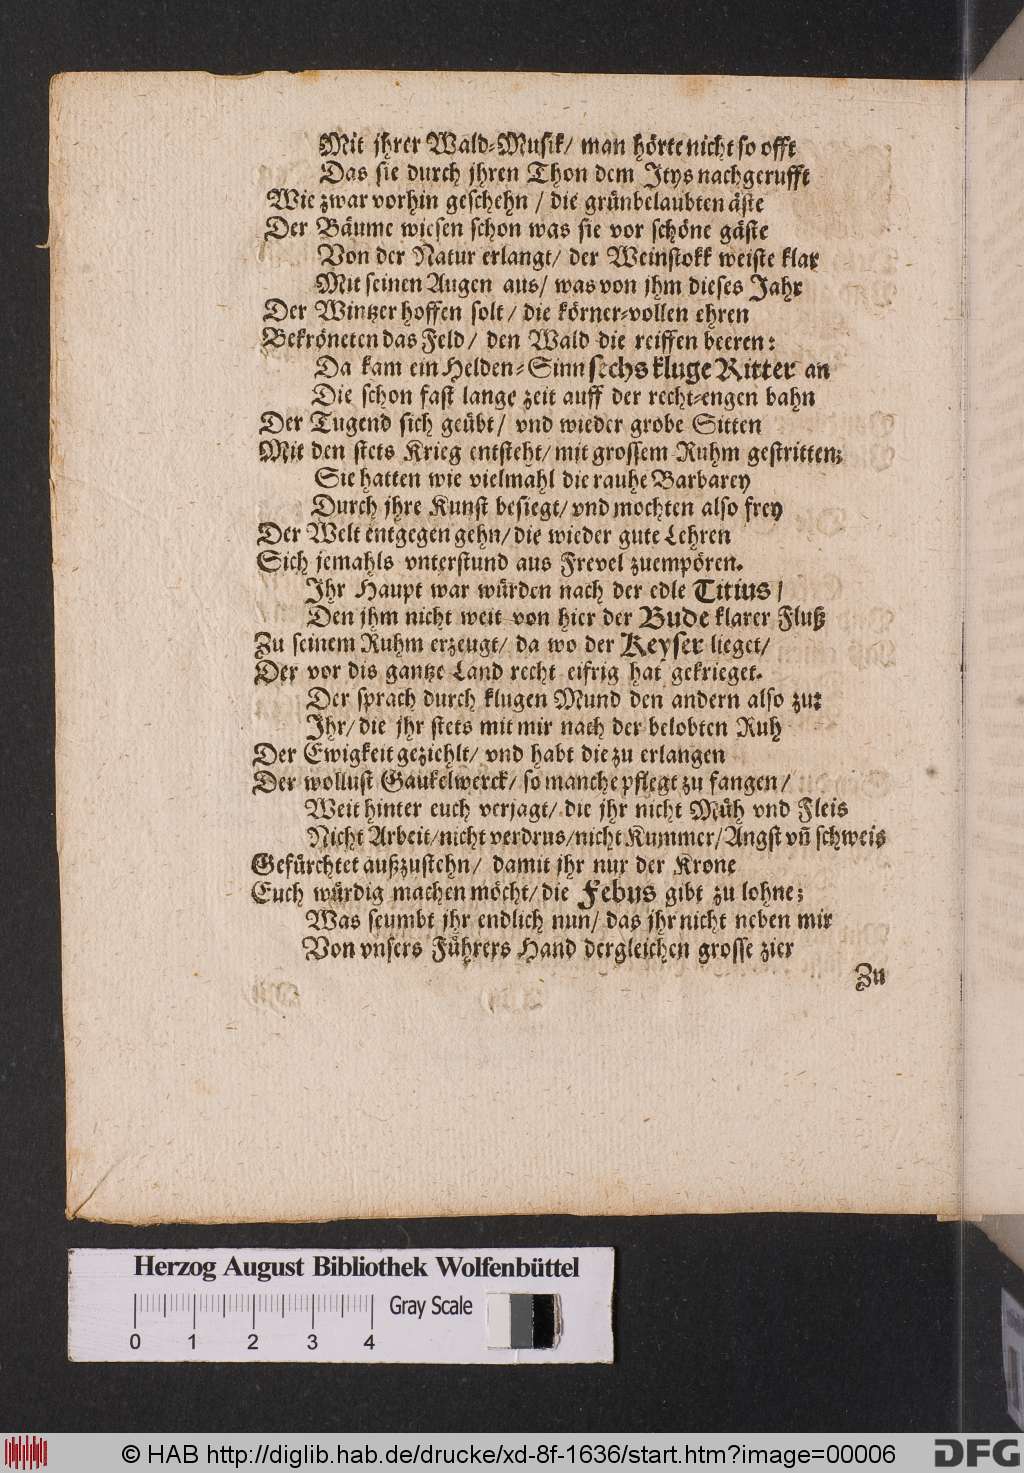 Mit jhrer Wald-Musik/ man hörte nicht so offt
Das sie durch jhren Thon dem Itys nachgerufft
Wie zwar vorhin geschehn / die grünbelaubten äste
Der Bäume wiesen schon was sie vor schöne gäste
Von der Natur erlangt/ der Weinstokk weiste klar
Mit seinen Augen aus/ was von jhm dieses Jahr
Der Wintzer hoffen solt/ die körner-vollen ehren
Bekröneten das Feld/ den Wald die reiffen beeren:
Da kam ein Helden-Sinn sechs kluge Ritter an
Die schon fast lange zeit auff der recht-engen bahn
Der Tugend sich geübt/ vnd wieder grobe Sitten
Mit den stets Krieg entsteht/ mit grossem Ruhm gestritten;
Sie hatten wie vielmahl die rauhe Barbarey
Durch jhre Kunst besiegt/ vnd mochten also frey
Der Welt entgegen gehn/ die wieder gute Lehren
Sich jemahls vnterstund aus Frevel zuempören.
Ihr Haupt war würden nach der edle Titius/
Den jhm nicht weit von hier der Bude klarer Fluß
Zu seinem Ruhm erzeugt/ da wo der Keyser lieget/
Der vor dis gantze Land recht eifrig hat gekrieget.
Der sprach durch klugen Mund den andern also zu:
Ihr/ die jhr stets mit mir nach der belobten Ruh
Der Ewigkeit geziehlt/ vnd habt die zu erlangen
Der wollust Gaukelwerck/ so manche pflegt zu fangen/
Weit hinter euch verjagt/ die jhr nicht Müh vnd Fleis
Nicht Arbeit/ nicht verdrus/ nicht Kummer/ Angst vñ schweis
Gefürchtet außzustehn/ damit jhr nur der Krone
Euch würdig machen möcht/ die Febus gibt zu lohne;
Was seumbt jhr endlich nun/ das jhr nicht neben mir
Von vnsers Führers Hand dergleichen grosse zier
Zu
Herzog August Bibliothek Wolfenbüttel
0 1 2 3 4 Gray Scale
© HAB http://diglib.hab.de/drucke/xd-8f-1636/start.htm?image=00006 DFG